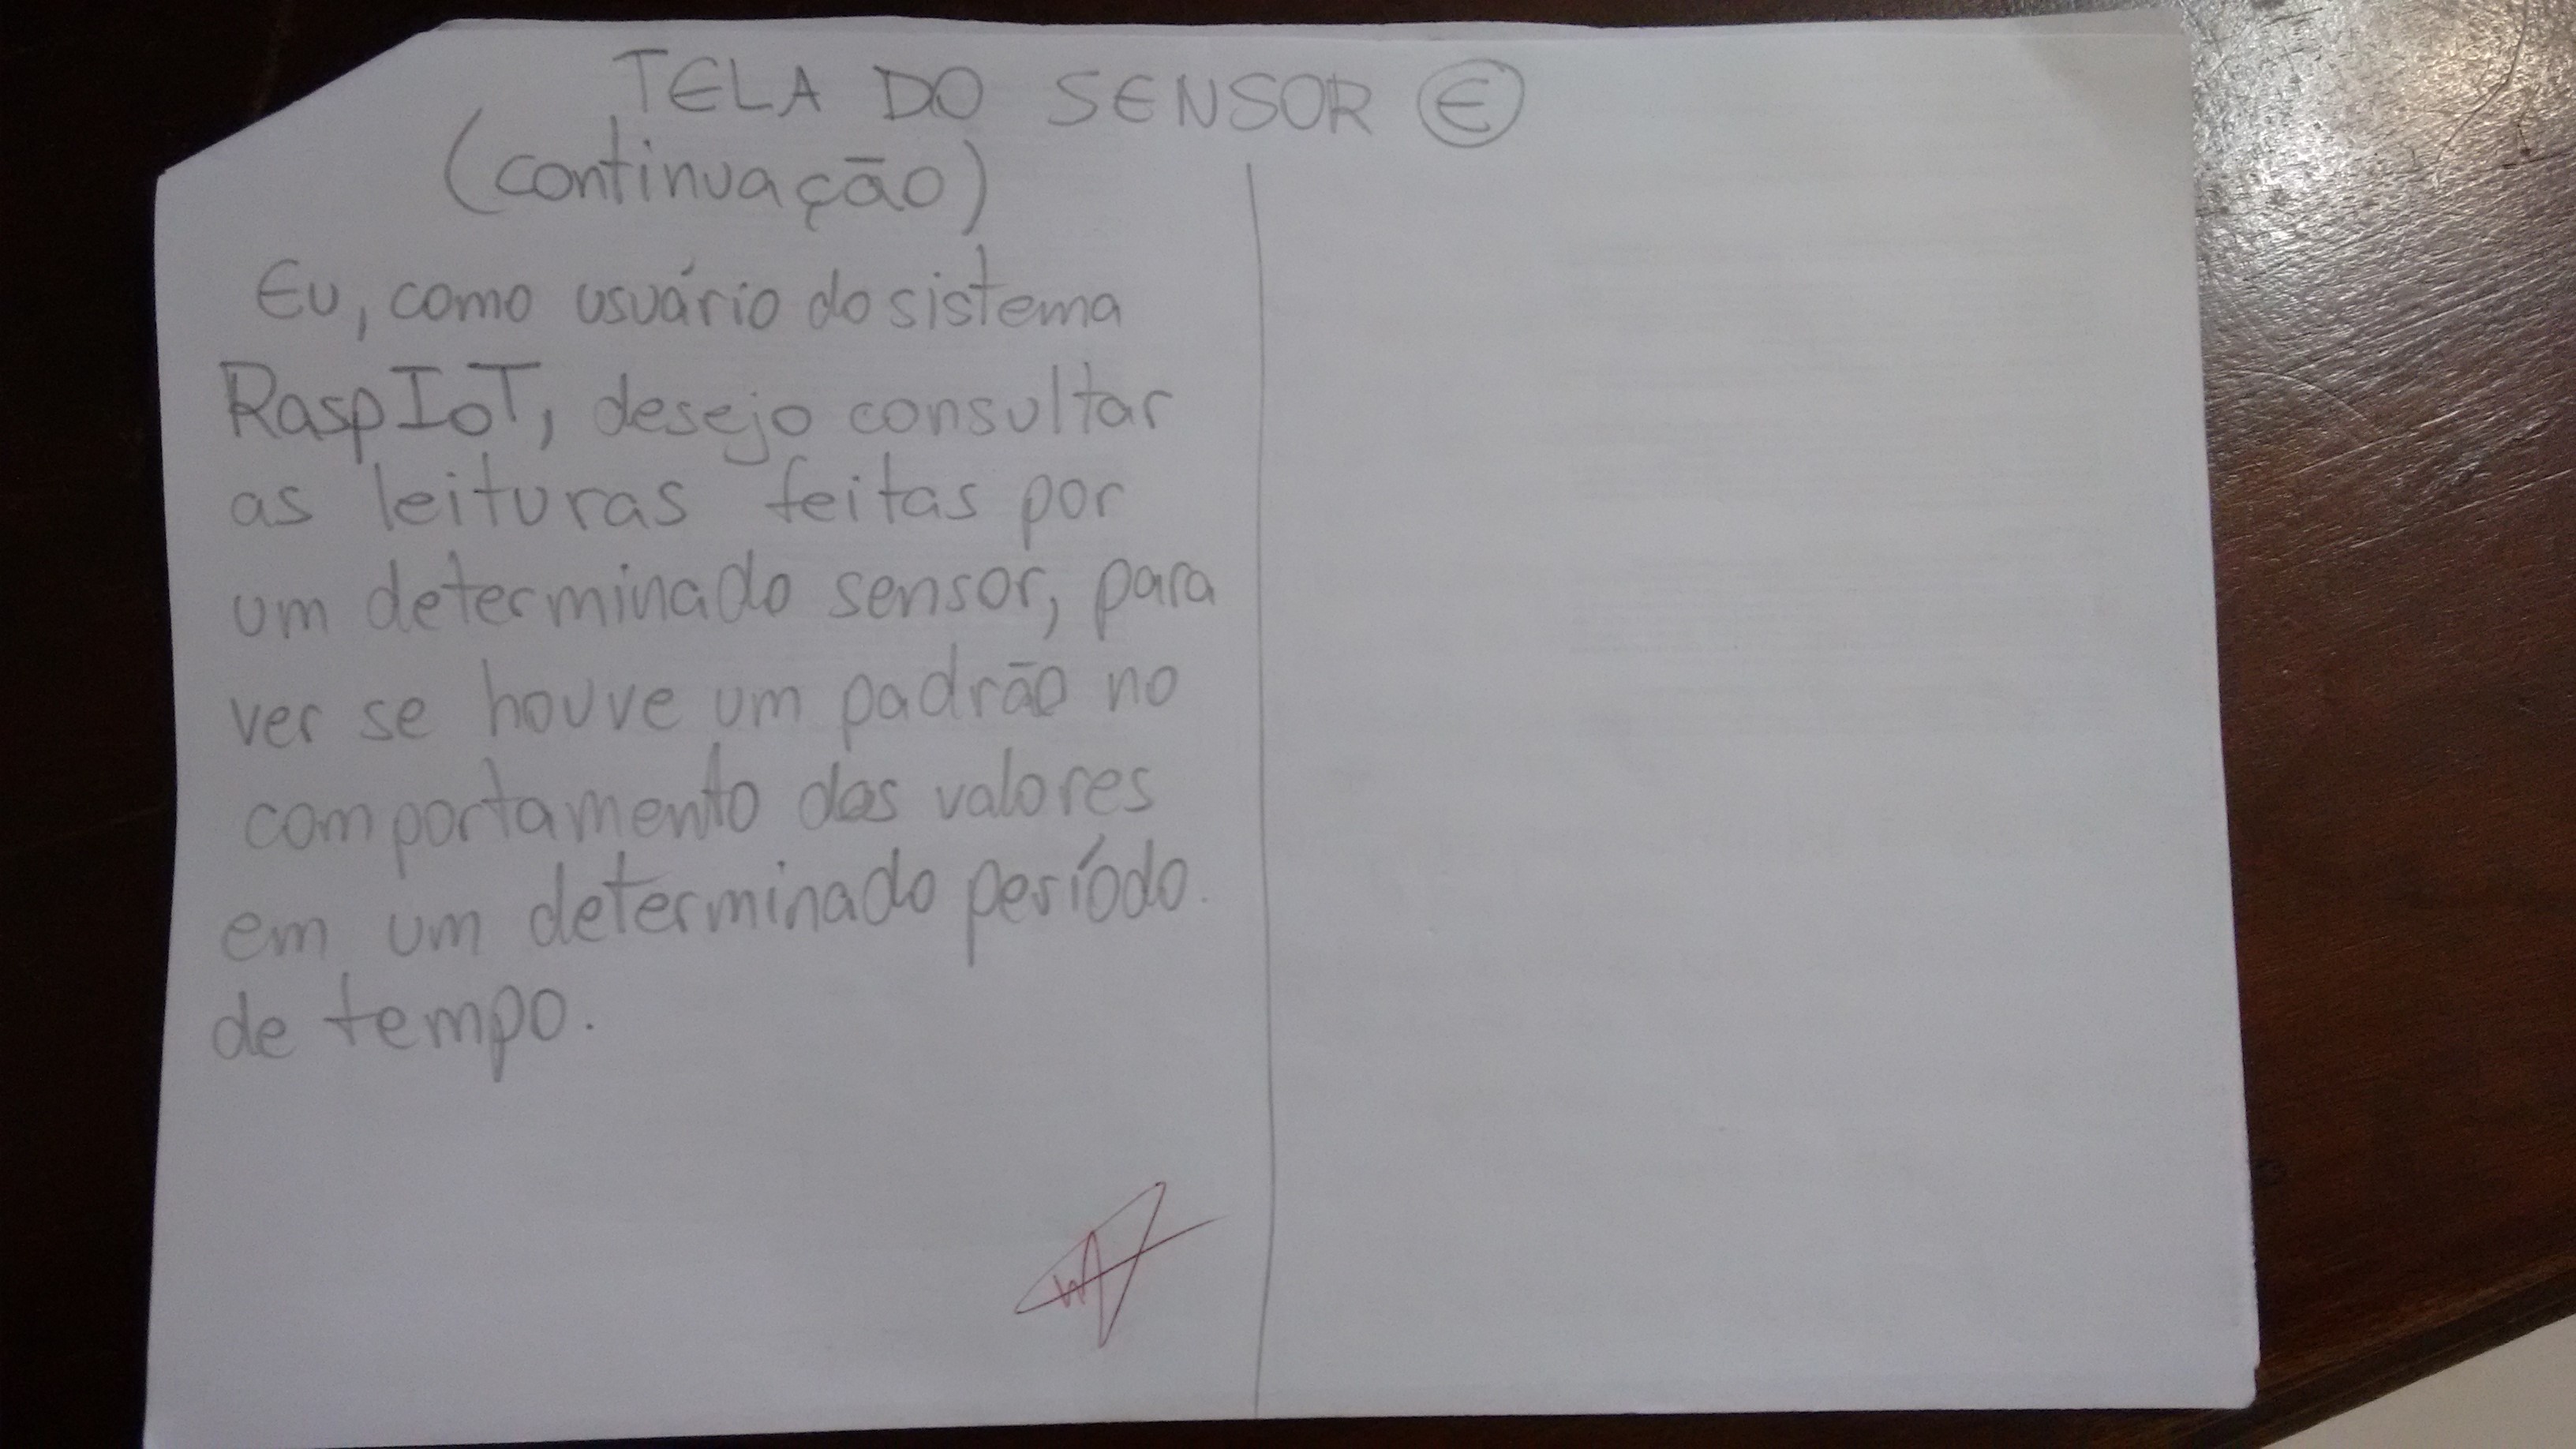 TELA DO SENSOR E
(continuação)
Eu, como usuário do sistema
RaspIoT, desejo consultar
as leituras feitas por
um determinado sensor, para
ver se houve um padrão no
comportamento dos valores
em um determinado período.
de tempo.